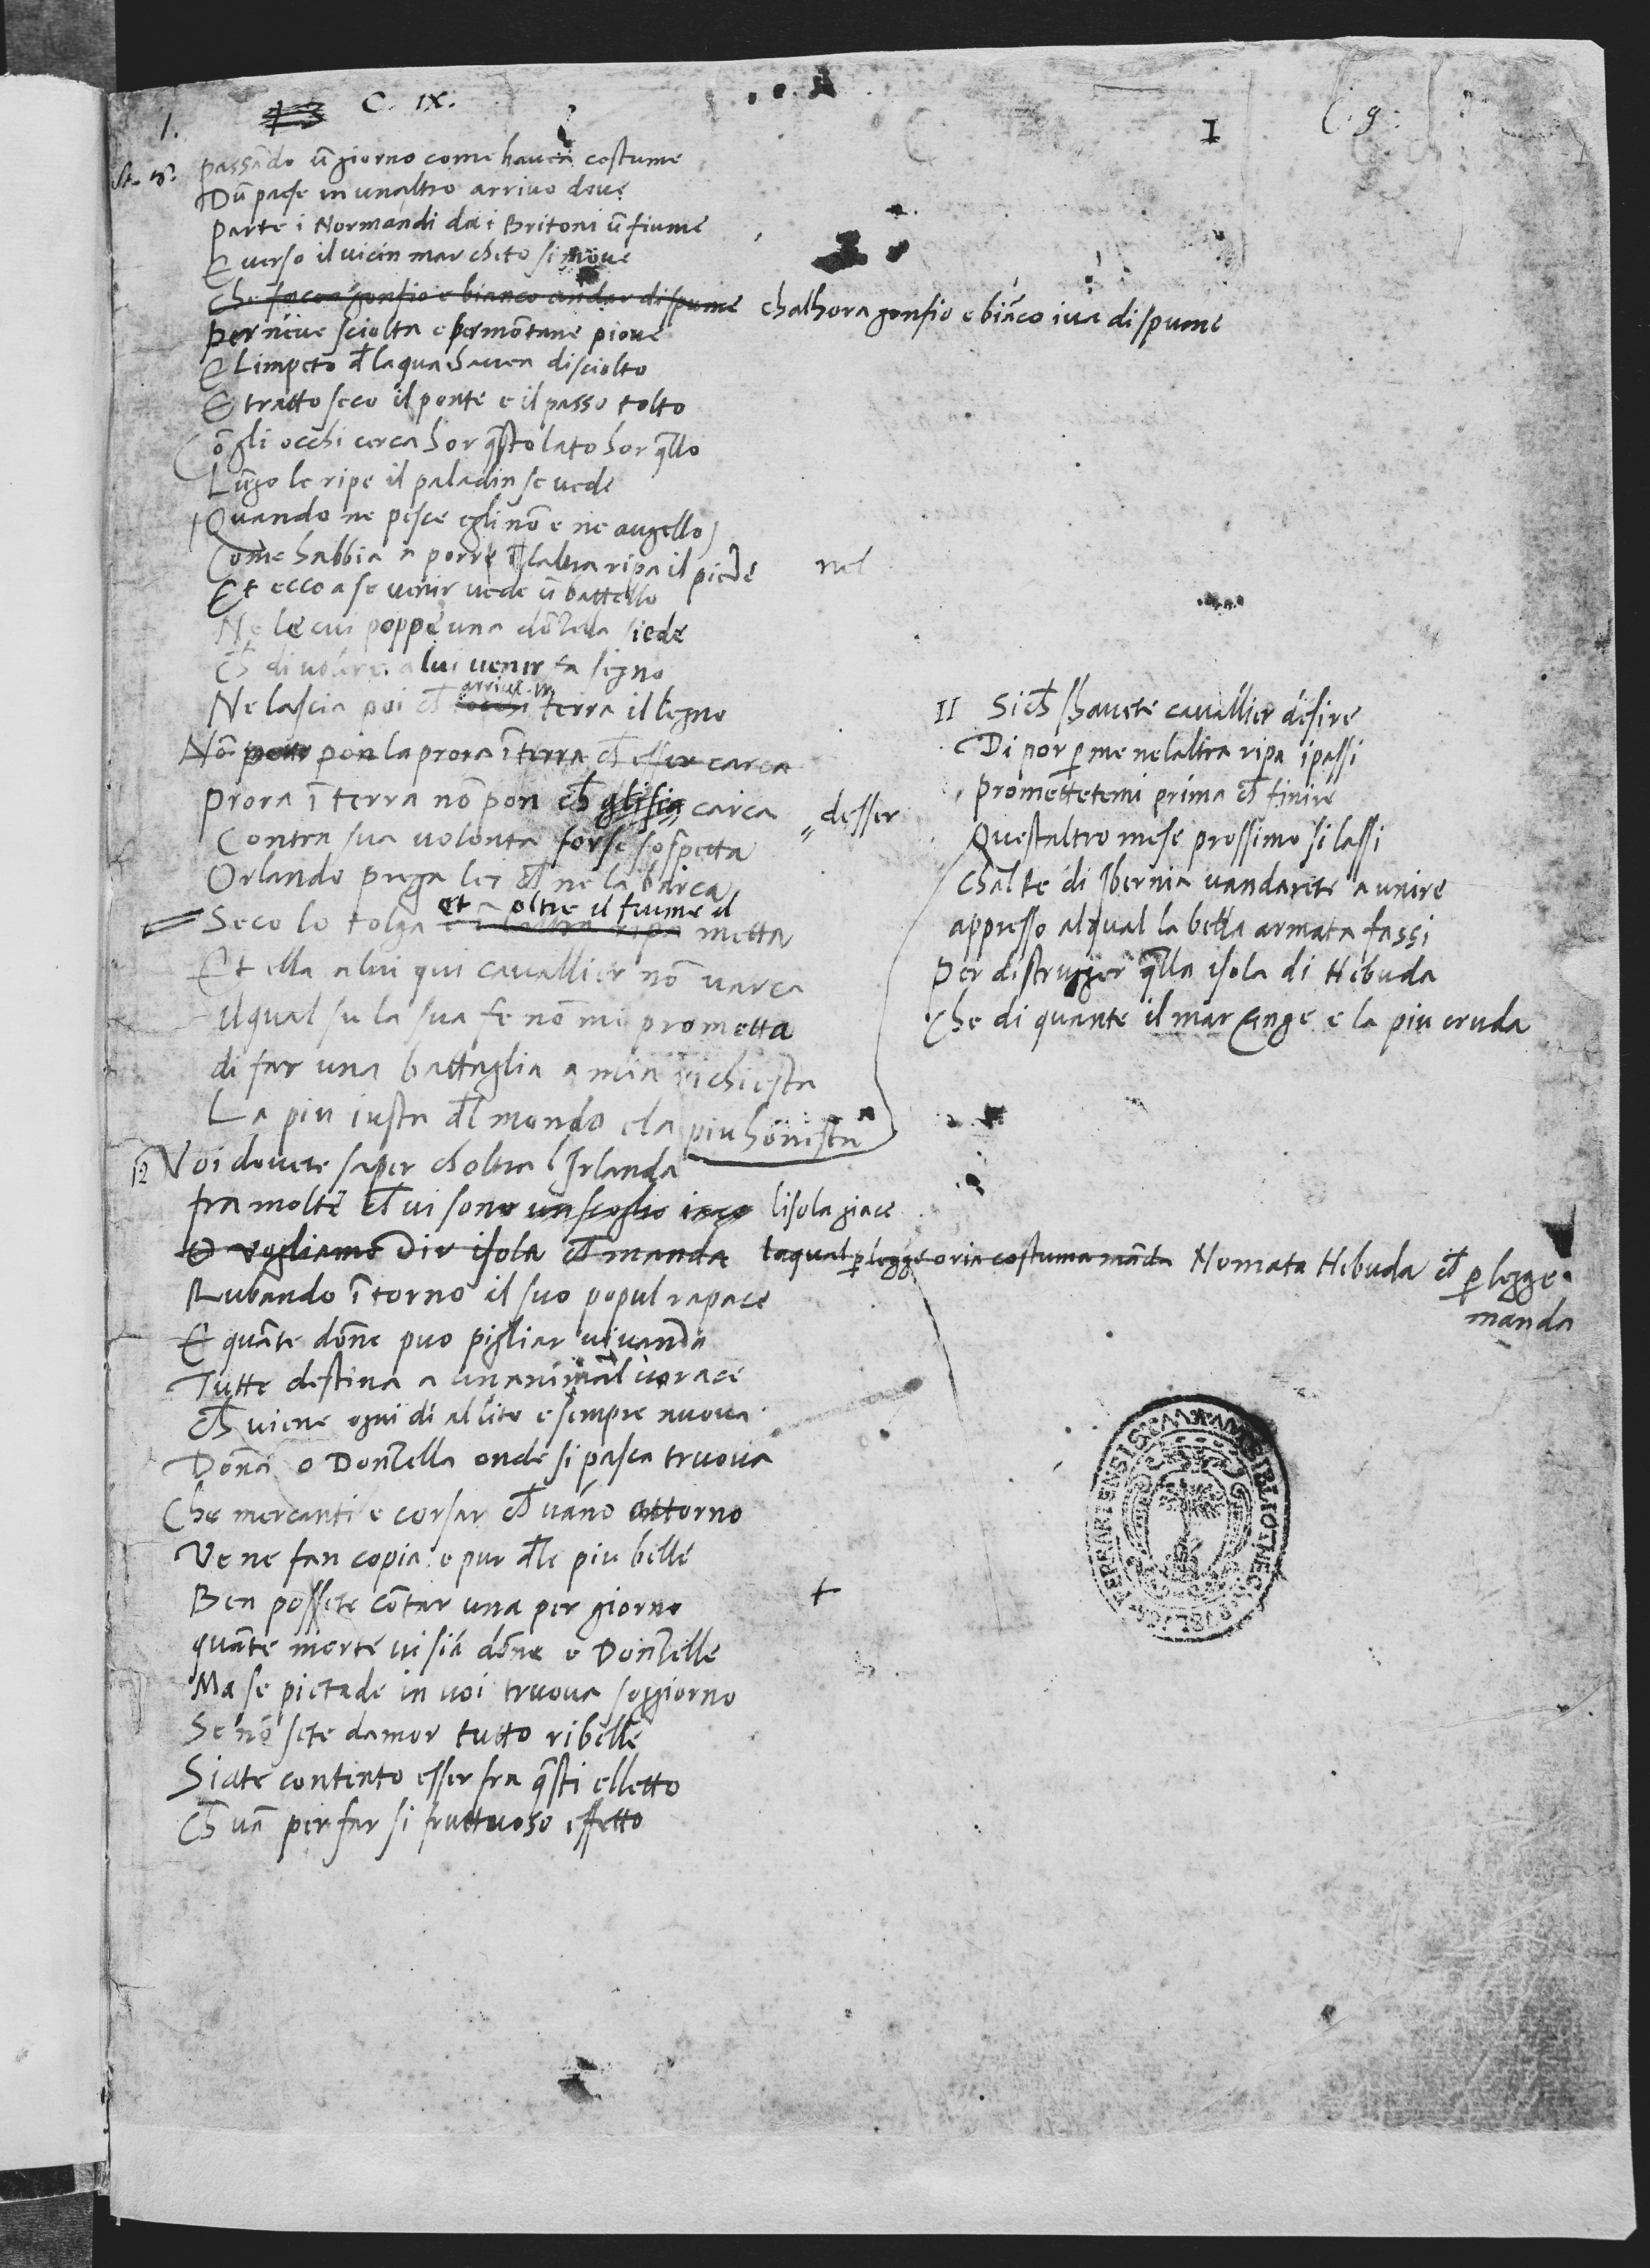 1.
C. IX.
I
C. 9.
St. 8.
passādo ū giorno come havea costume
Dū paese in unaltro arrivo dove
parte i Normandi da i Britoni ū fiume
E verso il vicin mar cheto si move
Che facea gonfio e bianco andar di spume chalhora gonfio e biāco iva di spume
per neve sciolta e per mōtane piove
E Limpeto dl laqua havea disciolto
E tratto seco il ponte e il passo tolto
Cō gli occhi cerca hor q̄sto lato hor q̄llo
Lūgo le ripe il paladin se vede
(Quando ne pesce egli nō e ne augello)
Come habbia a porre ī laltra ripa il piede nel
Et ecco a se venir vede ū battello
Ne le cui poppe una dōzella siede
Ch di volere a lui venir fa segno
Ne lascia poi ch arrivi in terra il legno
Nō pon la prora ī terra ch esser carca
prora ī terra nō pon ch gli sia carca desser
Contra sua volonta forse sospetta
Orlando prega lei ch ne la barca
et oltre il fiume il
Seco lo tolga e ī laltra ripa metta
Et ella a lui qui cavallier nō varca
ilqual su la sua fe nō mi prometta
di far una battaglia a mia richiesta
La piu iusta dl mondo e la piu honesta
II Sich shavete cavallier desire
Di por p̄ me nelaltra ripa i passi
promettetemi prima ch finire
Questaltro mese prossimo si lassi
Chal Re di Ibernia vandarete a unire
appresso alqual la bella armata fassi
per distrugger q̄lla isola di Hebuda
Che di quante il mar cinge e la piu cruda
12 Voi dovete saper ch oltra lIrlanda
fra molte ch vi sono un scoglio lisola giace
O vogliamo dir isola ch manda laqual p̄ legge o ria costuma māda Nomata Hebuda ch p̄ legge
manda
Rubando ī torno il suo popul rapace
E quāte dōne puo pigliar vivanda
Tutte destina a un animal vorace
Ch viene ogni di al lito e sempre nuova
Dōna o Donzella onde si pasca truova
Che mercanti e corsar ch vāno attorno
Ve ne fan copia e pur dle piu belle
Ben possete cōtar una per giorno
quāte morte vi siā dōne e Donzelle
Ma se pietade in voi truova soggiorno
Se nō sete damor tutto ribelle
Siate contento esser fra q̄sti elletto
Ch vā per far si fruttuoso effetto